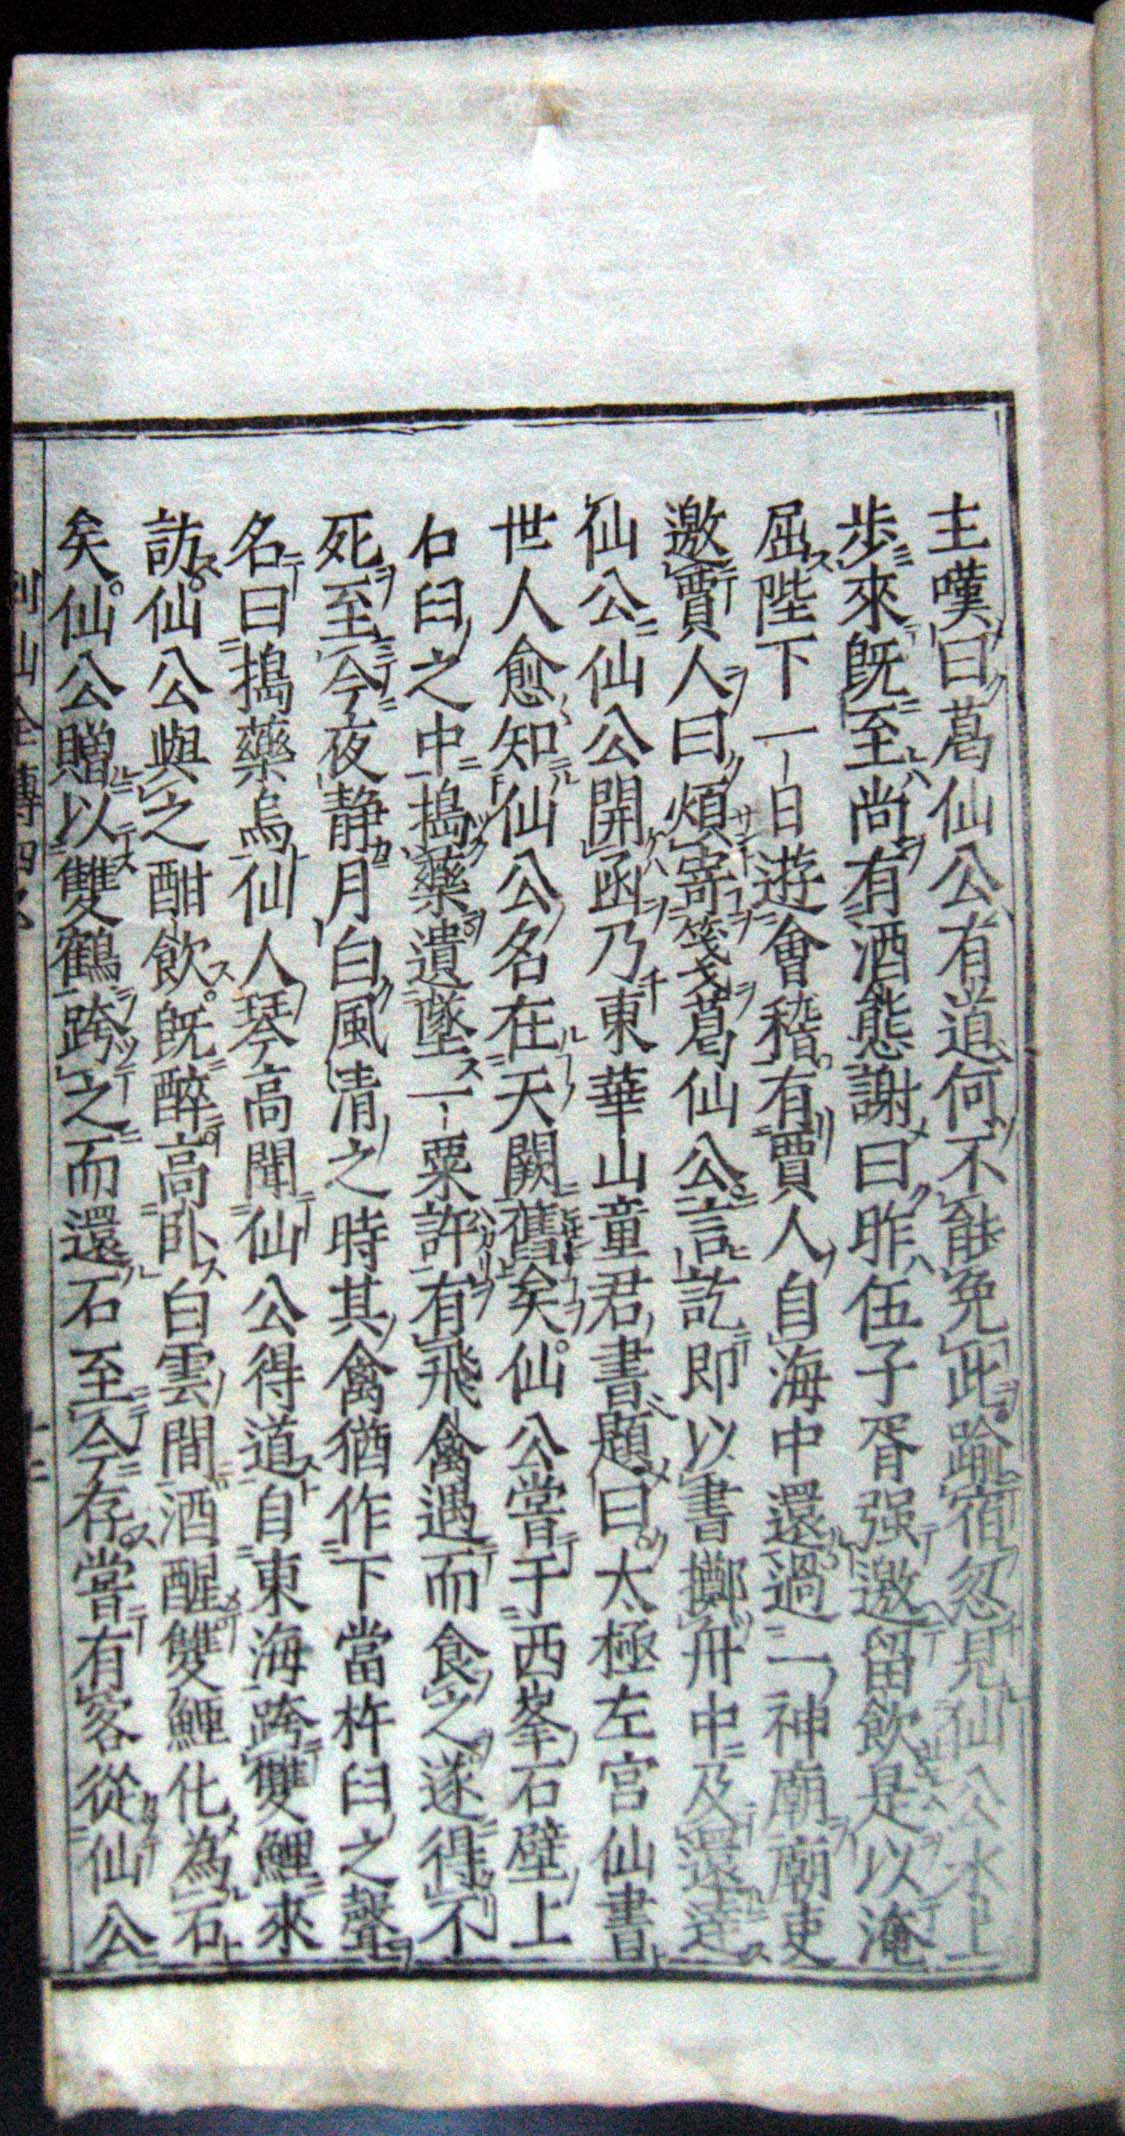 主嘆曰葛仙公有道何不能免此踰宿忽見仙公水上
歩來既至尚有酒態謝曰昨伍子胥强邀留飲是以淹
屈陛下一日遊會稽有賈人自海中還過一神廟廟吏
邀賈人曰煩寄箋葛仙公言訖即以書擲舟中及還達
仙公仙公開函乃東華山童君書題曰太極左宮仙書
世人愈知仙公名在天闕舊矣仙公嘗于西峯石壁上
石臼之中搗藥遺墜一粟許有飛禽遇而食之遂得不
死至今夜静月白風清之時其禽猶作下當杵臼之聲
名曰搗藥烏仙人琴高聞仙公得道自東海跨雙鯉來
訪仙公與之酣飲既醉高卧白雲間酒醒雙鯉化為石
矣仙公贈以雙鶴跨之而還石至今存嘗有客從仙公
列仙全傳四
十二